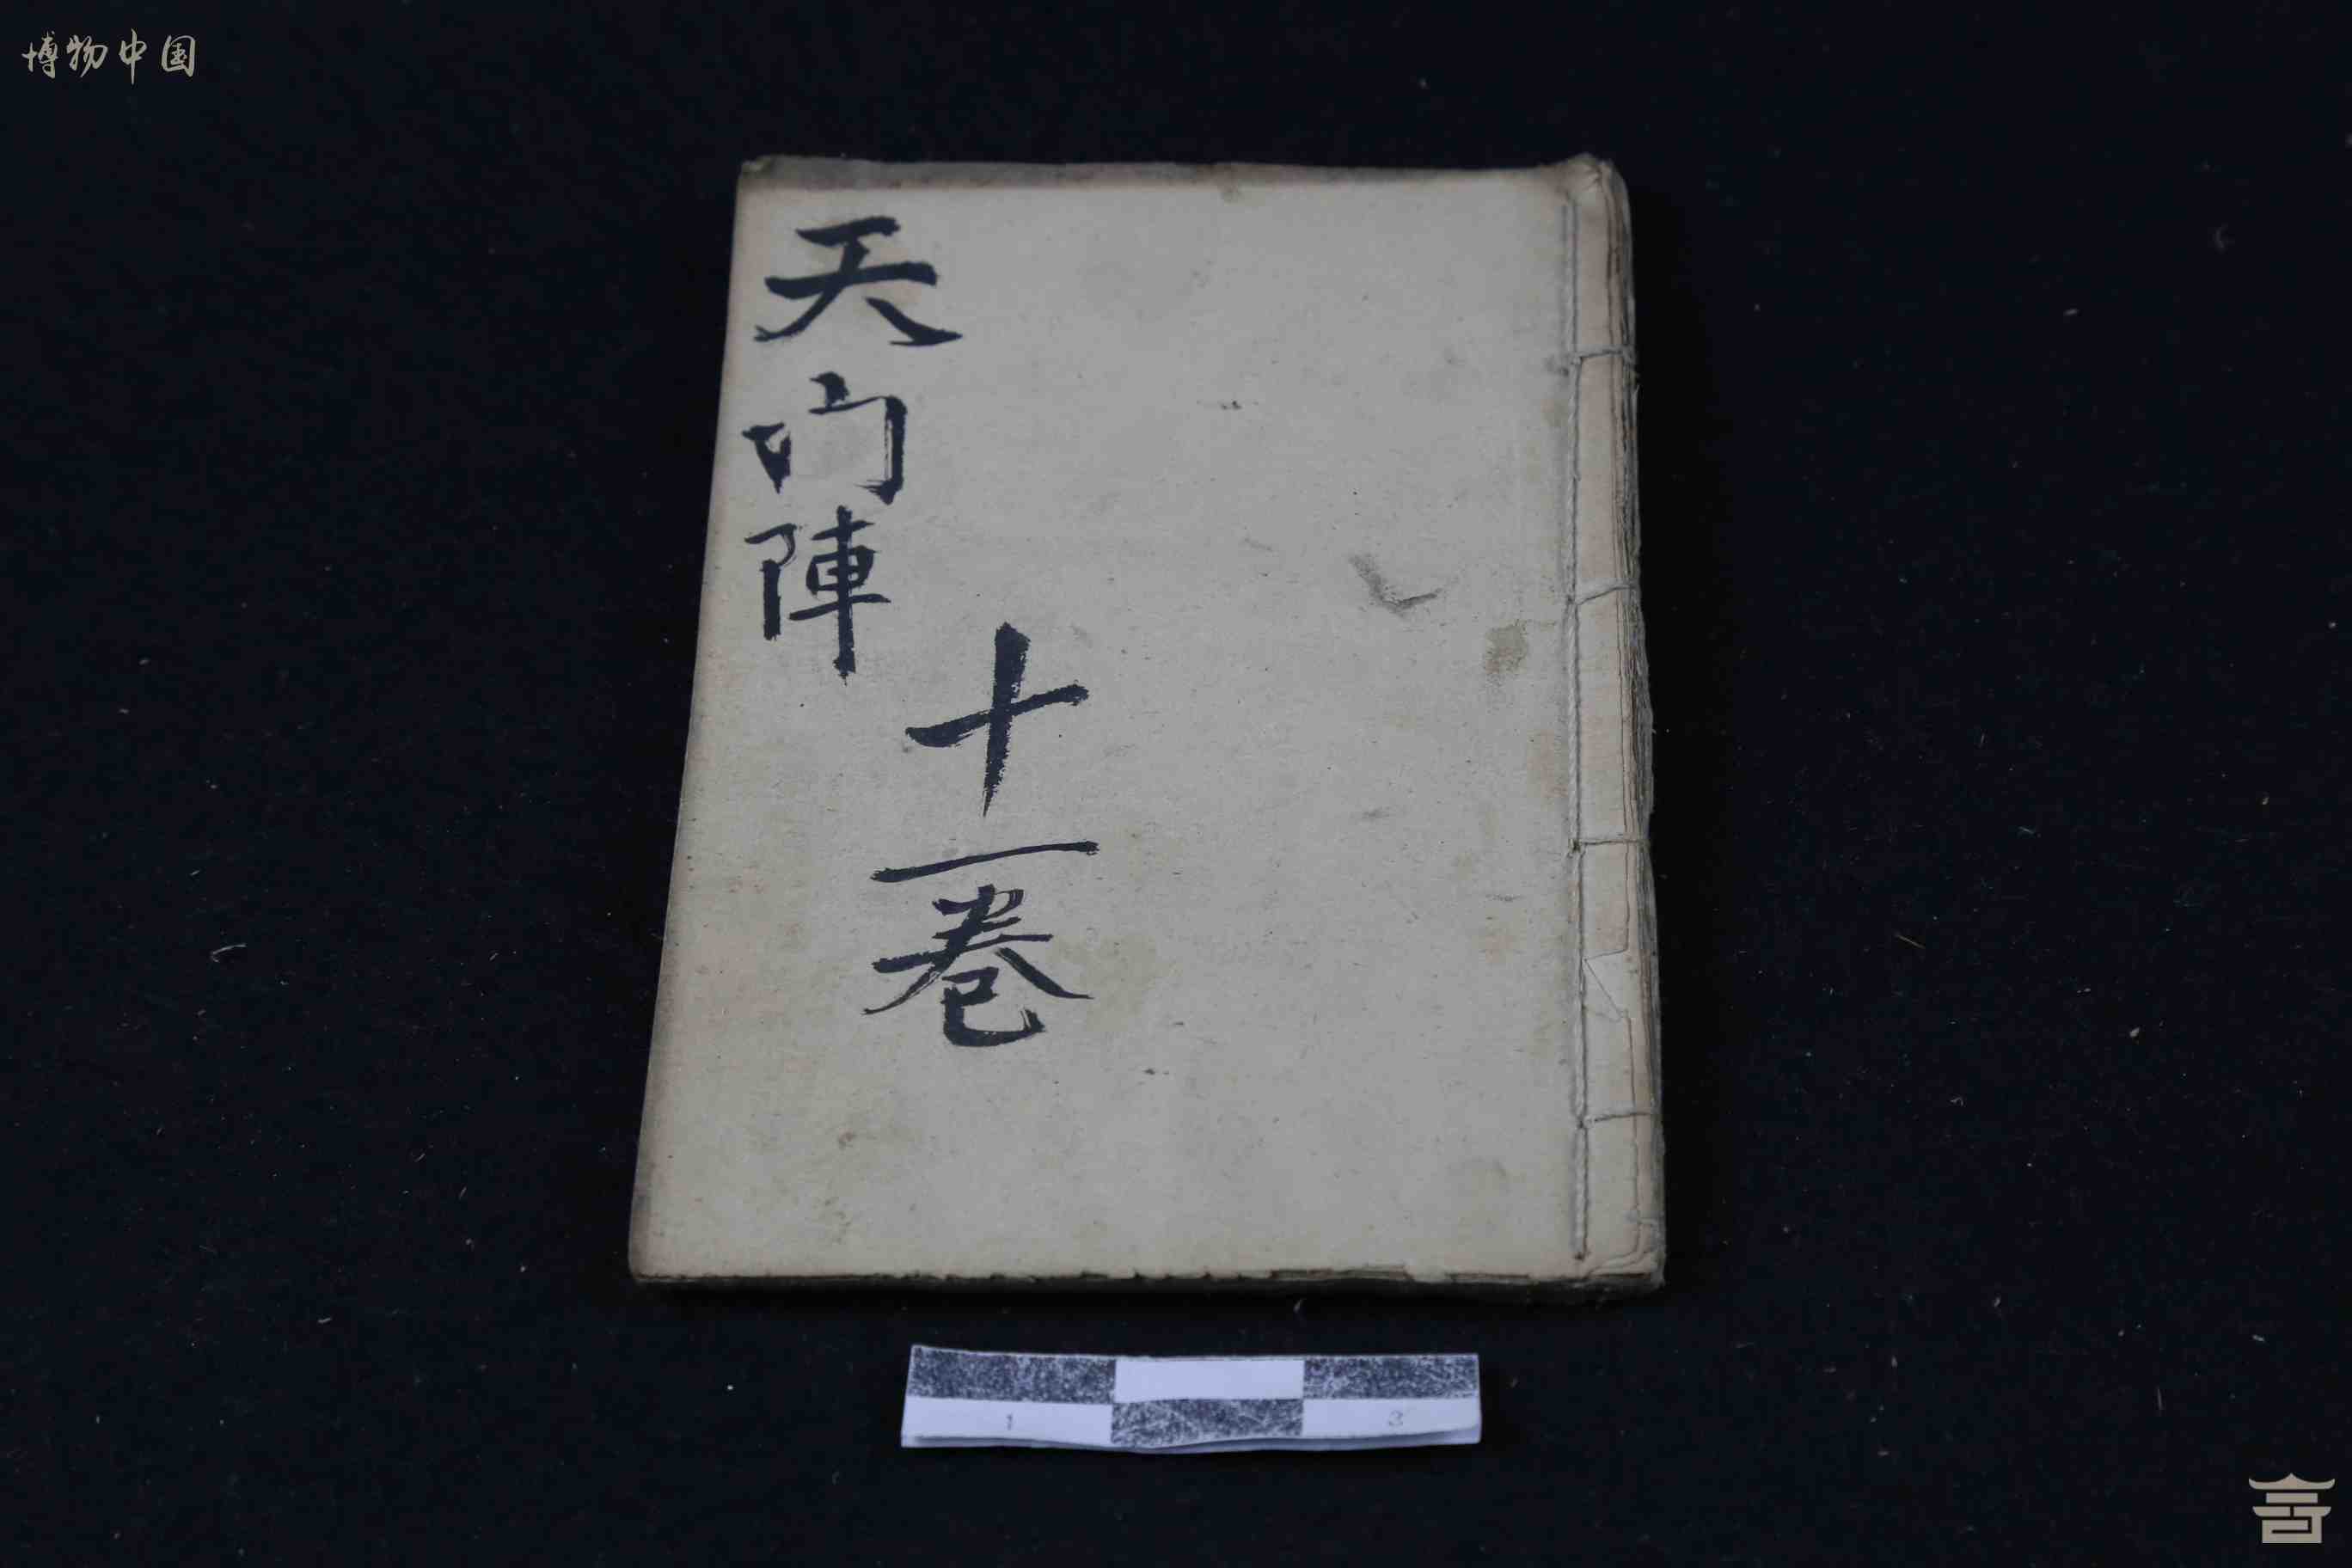 博物中国
天门陣
十一卷
1
3